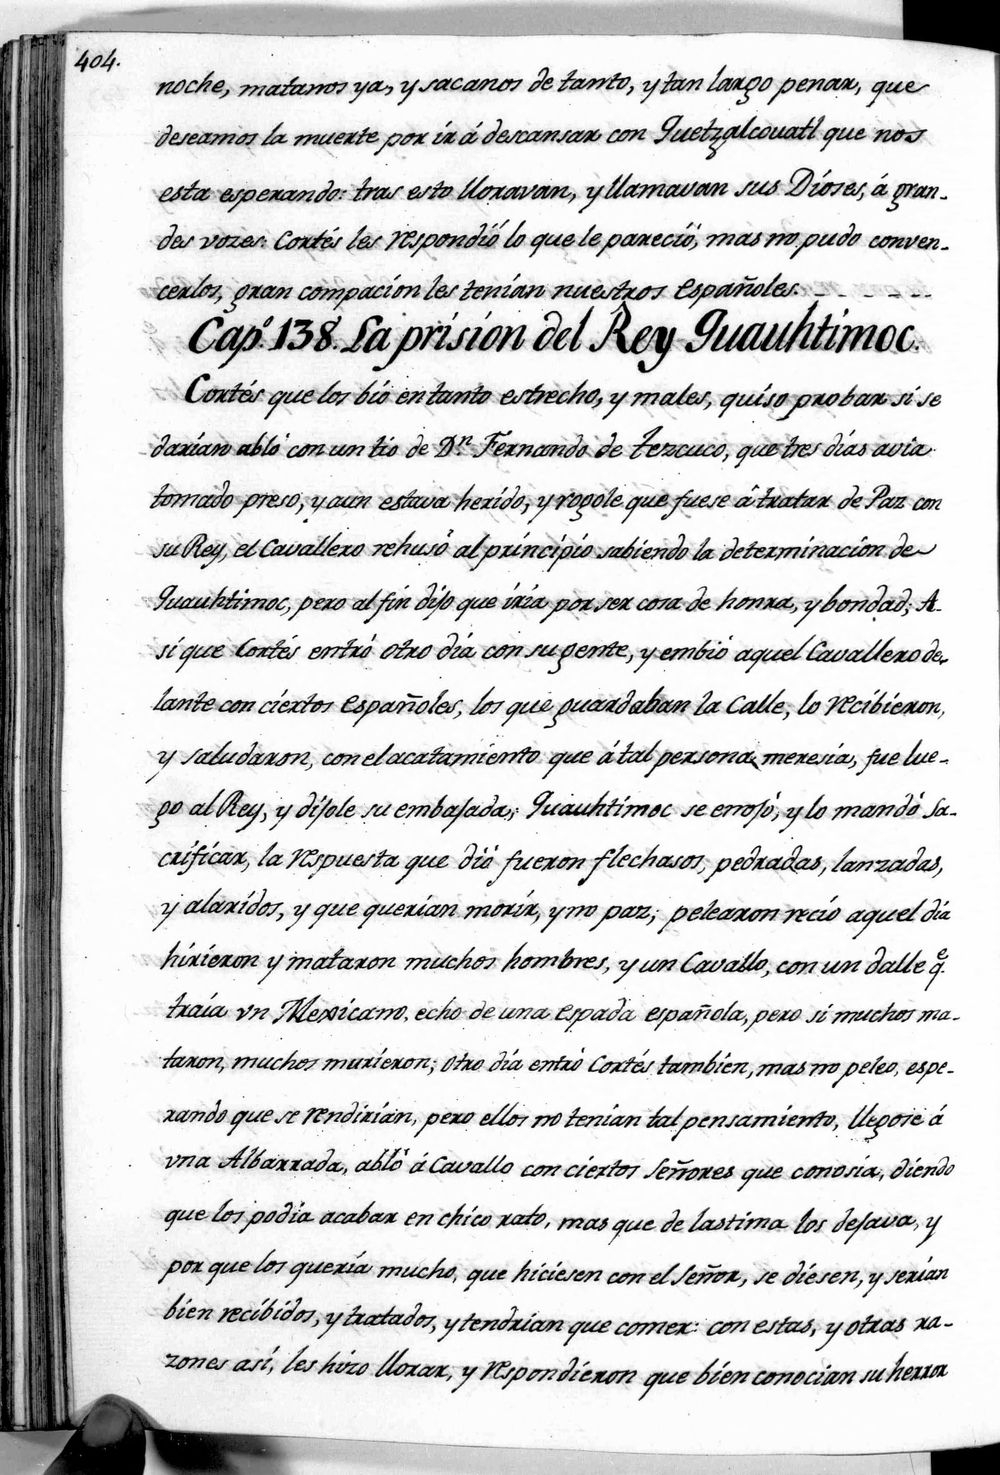 404.
noche, matanos ya, y sacanos de tanto, y tan largo penar, que
deseamos la muerte por ir á descansar con Quetzalcouatl que nos
esta esperando: tras esto lloravan, y llamavan sus Dioses, á gran-
des vozes: Cortés les respondió lo que le pareció, mas no pudo conven-
cerlos, gran compacion les tenian nuestros Españoles.
Capº. 138. La prision del Rey Quauhtimoc.
Cortés que los bio en tanto estrecho, y males, quiso probar si se
darian abló con un tio de Dn. Fernando de Tezcuco, que tres dias avia
tomado preso, y aun estava herido, y rogole que fuese â tratar de Paz con
su Rey, el Cavallero rehusó al principio sabiendo la determinacion de
Quauhtimoc, pero al fin dijo que iria por ser cosa de honra, y bondad; A-
si que Cortés entró otro dia con su gente, y embió aquel Cavallero de-
lante con ciertos Españoles, los que guardaban la Calle, lo recibieron,
y saludaron, con el acatamiento que á tal persona meresia, fue lue-
go al Rey, y dijole su embajada; Quauhtimoc se enojó, y lo mandó sa-
crificar, la respuesta que dió fueron flechasos, pedradas, lanzadas,
y alaridos, y que querian morir, y no paz; pelearon recio aquel dia
hirieron y mataron muchos hombres, y un Cavallo, con un dalle q.e
traia vn Mexicano, echo de una espada española, pero si muchos ma-
taron, muchos murieron; otro dia entró Cortés tambien, mas no peleo, espe-
rando que se rendirian, pero ellos no tenian tal pensamiento, llegose á
vna Albarrada, abló á Cavallo con ciertos Señores que conosia, diendo
que los podia acabar en chico rato, mas que de lastima los dejava, y
por que los queria mucho, que hiciesen con el Señor, se diesen, y serian
bien recibidos, y tratados, y tendrian que comer: con estas, y otras ra-
zones asi, les hizo llorar, y respondieron que bien conocian su herror